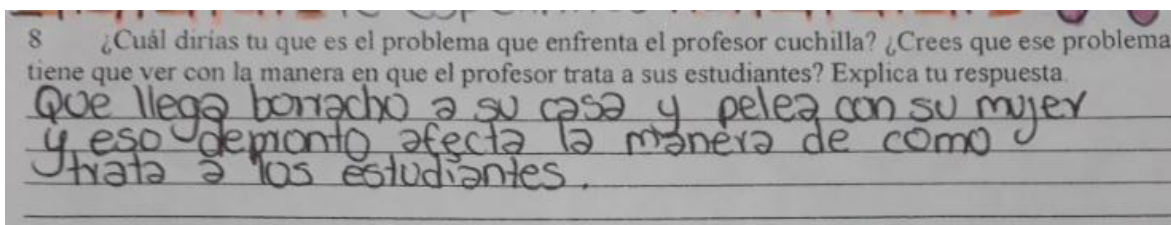 8 ¿Cuál dirías tu que es el problema que enfrenta el profesor cuchilla? ¿Crees que ese problema
tiene que ver con la manera en que el profesor trata a sus estudiantes? Explica tu respuesta.
Que llega borracho a su casa y pelea con su mujer
y eso demonto afecta la manera de como
trata a los estudiantes.